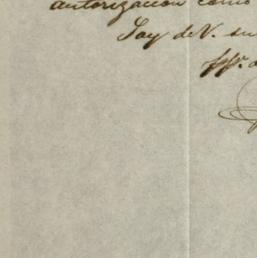 autorizacion como
Soy de V. su